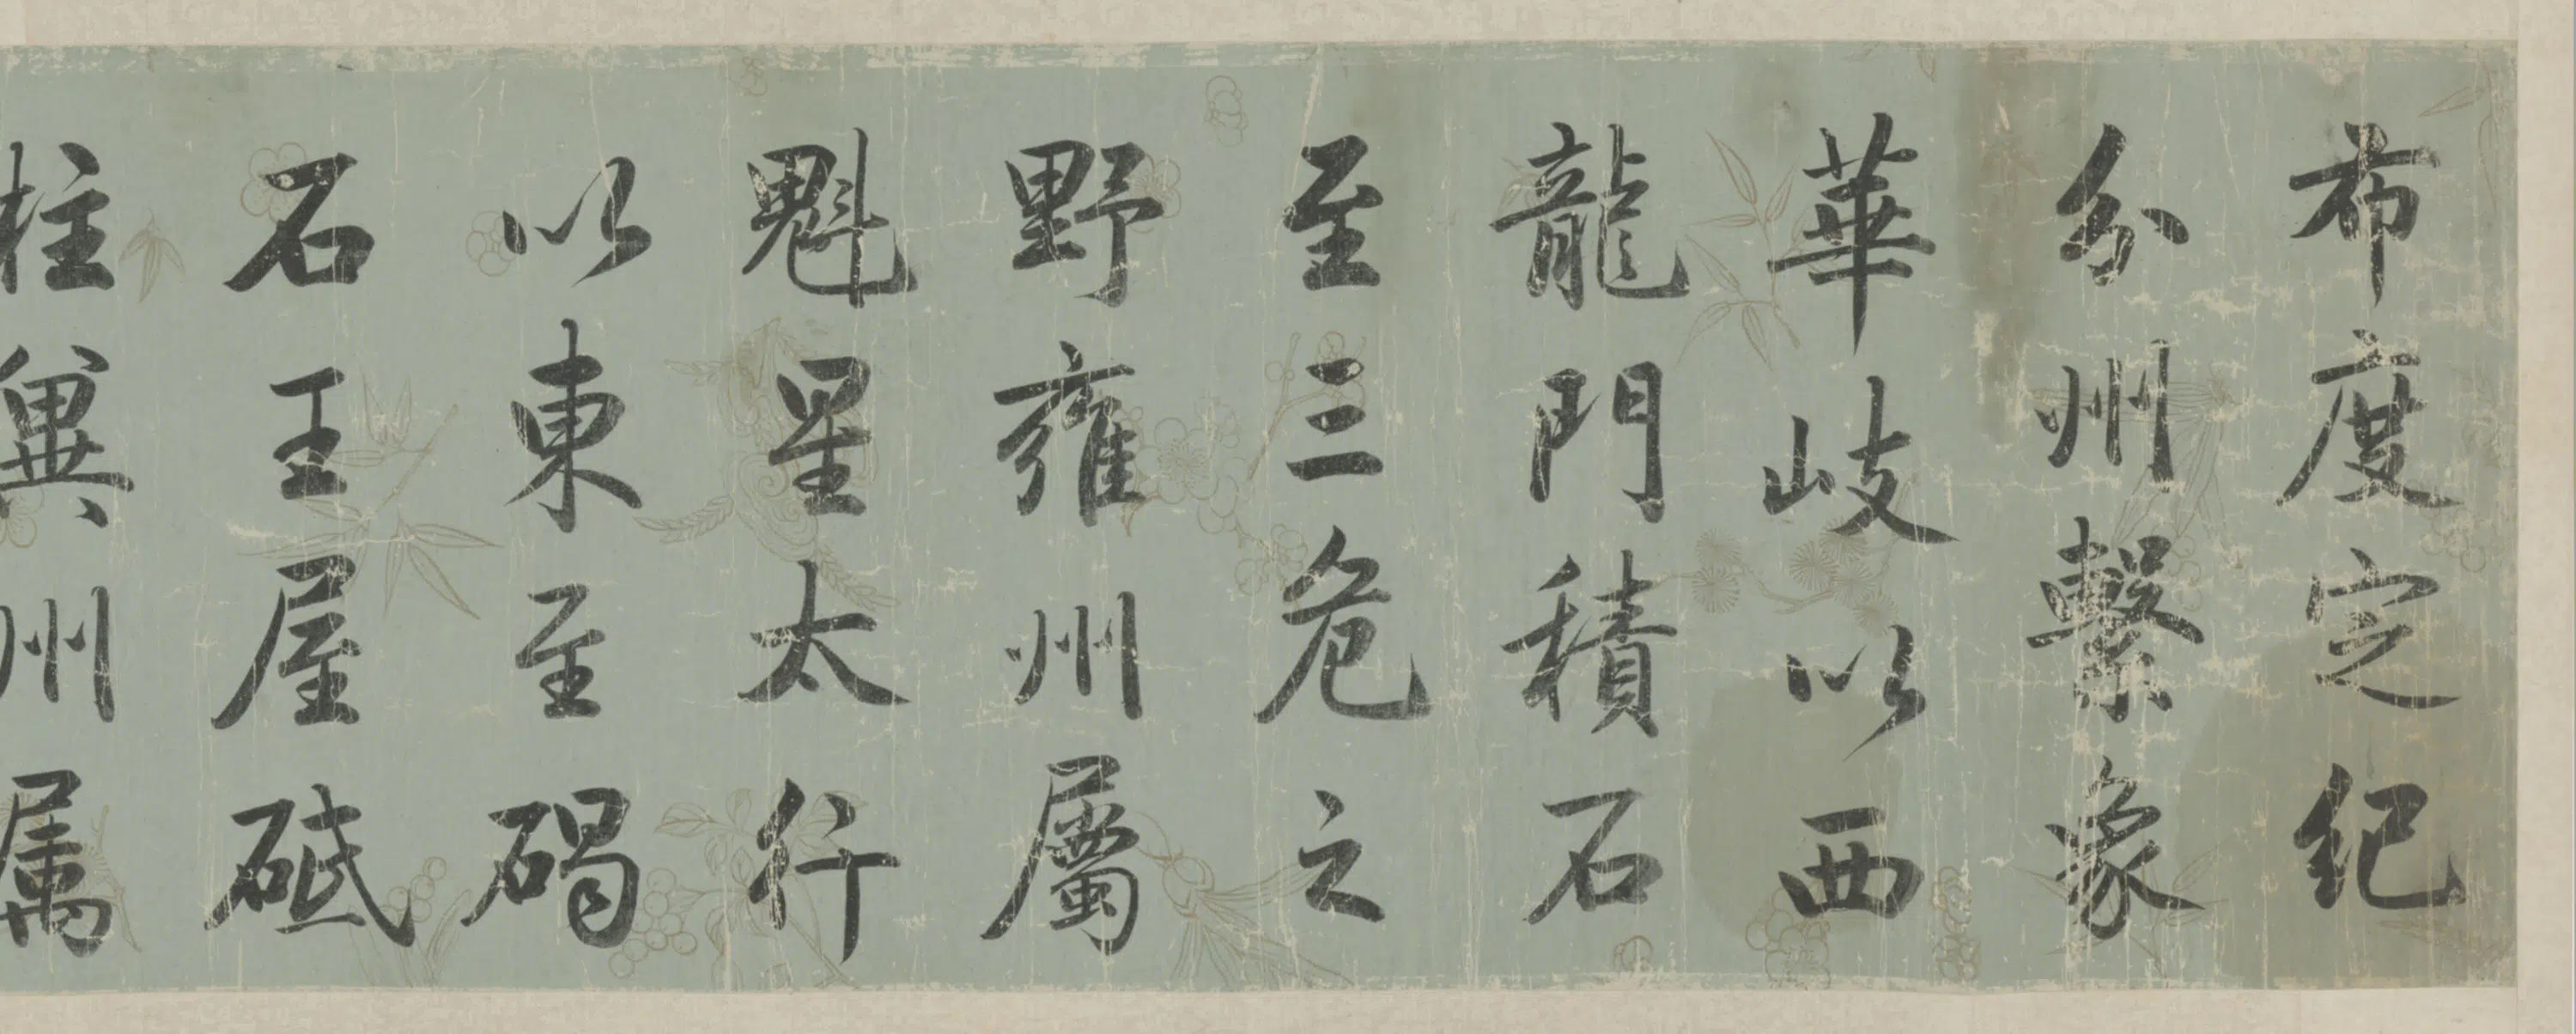 布度定紀
分州繫象
華岐以西
龍門積石
至三危之
野雍州屬
魁星太行
以東至碣
石王屋砥
柱冀州属